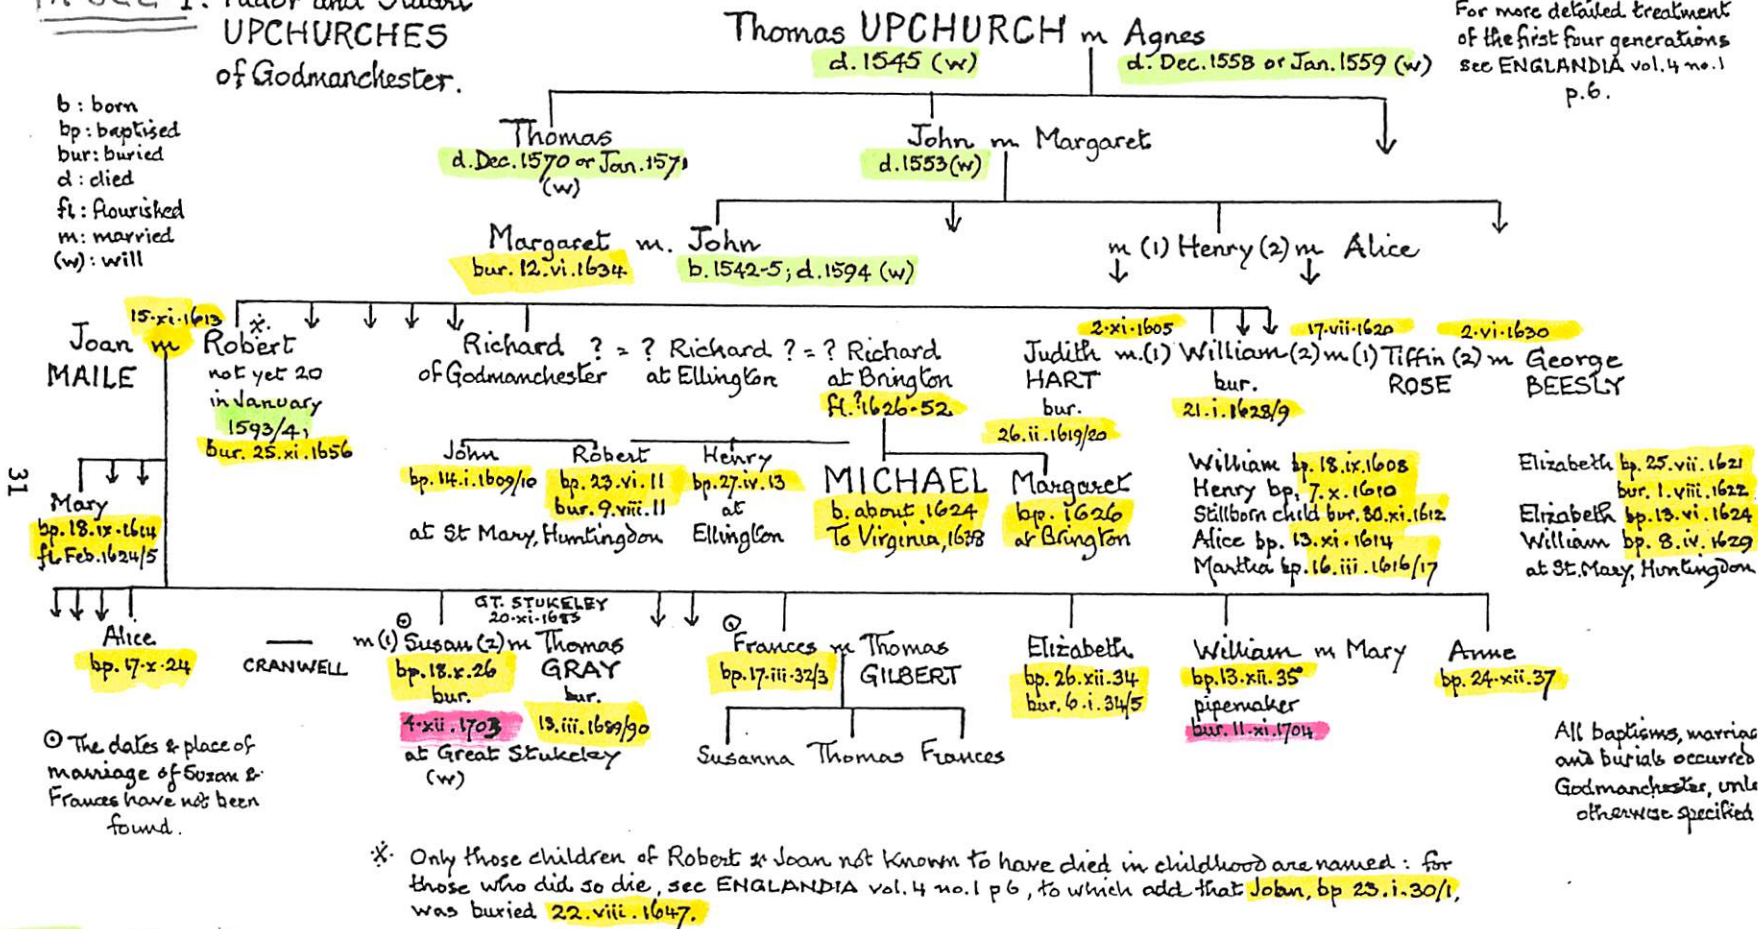 1. Tudor and Stuart
UPCHURCHES
of Godmanchester.
Thomas UPCHURCH m Agnes
d. 1545 (w)
d. Dec. 1558 or Jan. 1559 (w)
For more detailed treatment
of the first four generations
see ENGLANDIA vol. 4 no. 1
p. 6.
b : born
bp : baptised
bur : buried
d : died
fl : flourished
m : married
(w) : will
Thomas
d. Dec. 1570 or Jan. 1571
(w)
John m Margaret
d. 1553 (w)
Margaret m. John
bur. 12. vi. 1634
b. 1542-5; d. 1594 (w)
m (1) Henry (2) m Alice
15. xi. 1613
Joan m Robert
MAILE
not yet 20
in January
1593/4;
bur. 25. xi. 1656
Richard ? = ? Richard ? = ? Richard
of Godmanchester
at Ellington
at Brington
fl. ?1626-52
2. xi. 1605
17. vii. 1620
2. vi. 1630
Judith m. (1) William (2) m (1) Tiffin (2) m George
HART
bur.
26. ii. 1619/20
bur.
21. i. 1628/9
ROSE
BEESLY
31
Mary
bp. 18. ix. 1614
fl. Feb. 1624/5
John
bp. 14. i. 1609/10
Robert
bp. 23. vi. 11
bur. 9. viii. 11
at St Mary, Huntingdon
Henry
bp. 27. iv. 13
at
Ellington
MICHAEL
b. about 1624
To Virginia, 1638
Margaret
bp. 1626
at Brington
William bp. 18. ix. 1608
Henry bp. 7. x. 1610
Stillborn child bur. 30. xi. 1612
Alice bp. 13. xi. 1614
Martha bp. 16. iii. 1616/17
Elizabeth bp. 25. vii. 1621
bur. 1. viii. 1622
Elizabeth bp. 13. vi. 1624
William bp. 8. iv. 1629
at St. Mary, Huntingdon
Alice
bp. 17. x. 24
GT. STUKELEY
CRANWELL
m (1) Susan (2) m Thomas
bp. 18. x. 26
bur.
4. xii. 1703
GRAY
bur.
13. iii. 1689/90
at Great Stukeley
(w)
Frances m Thomas
bp. 17. iii. 32/3
GILBERT
Susanna Thomas Frances
Elizabeth
bp. 26. xii. 34
bur. 6. i. 34/5
William m Mary
bp. 13. xii. 35
pipemaker
bur. 11. xi. 1704
Anne
bp. 24. xii. 37
⊙ The dates & place of
marriage of Suzan &
Frances have not been
found.
All baptisms, marriag
and burials occurred
Godmanchester, unle
otherwise specified
※ Only those children of Robert & Joan not known to have died in childhood are named : for
those who did so die, see ENGLANDIA vol. 4 no. 1 p 6, to which add that John, bp 23. i. 30/1,
was buried 22. viii. 1647.